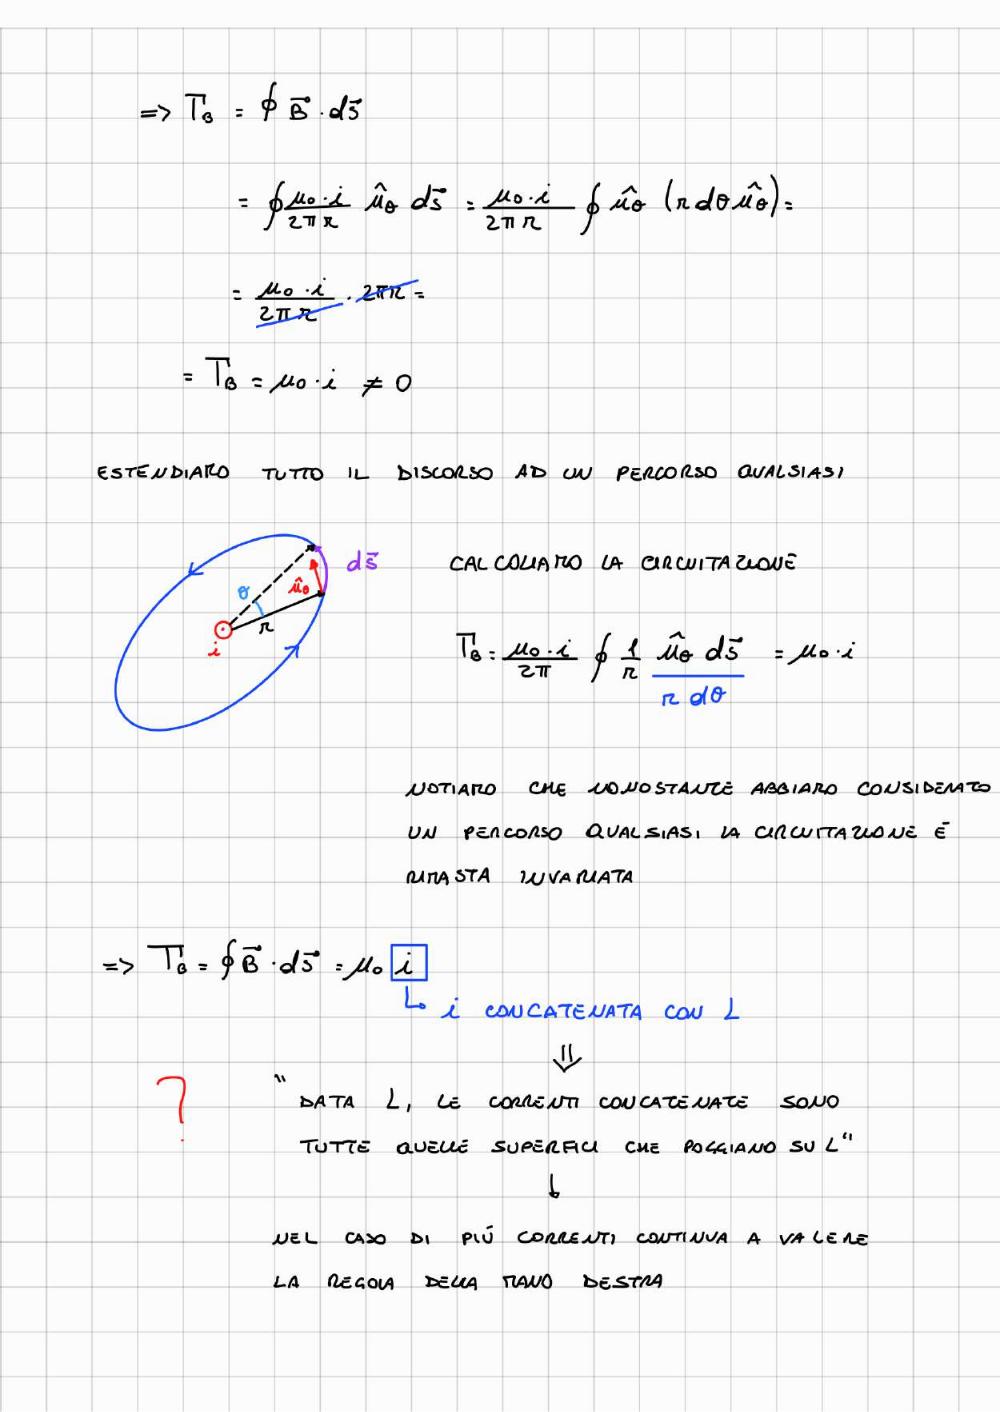 => T_B = ∮ B⃗ · ds⃗
= ∮ μ₀·i/2πr û_θ ds⃗ = μ₀·i/2πr ∮ û_θ (r dθ û_θ) =
= μ₀·i/2πr · 2πr =
= T_B = μ₀·i ≠ 0
ESTENDIAMO TUTTO IL DISCORSO AD UN PERCORSO QUALSIASI
ds⃗
θ
û_θ
r
i
CALCOLIAMO LA CIRCUITAZIONE
T_B = μ₀·i/2π ∮ 1/r û_θ ds⃗ = μ₀·i
r dθ
NOTIAMO CHE NONOSTANTE ABBIAMO CONSIDERATO
UN PERCORSO QUALSIASI LA CIRCUITAZIONE È
RIMASTA INVARIATA
=> T_B = ∮ B⃗ · ds⃗ = μ₀ i
↳ i CONCATENATA CON L
⇓
?
"DATA L, LE CORRENTI CONCATENATE SONO
TUTTE QUELLE SUPERFICI CHE POGGIANO SU L"
↓
NEL CASO DI PIÚ CORRENTI CONTINUA A VALERE
LA REGOLA DELLA MANO DESTRA